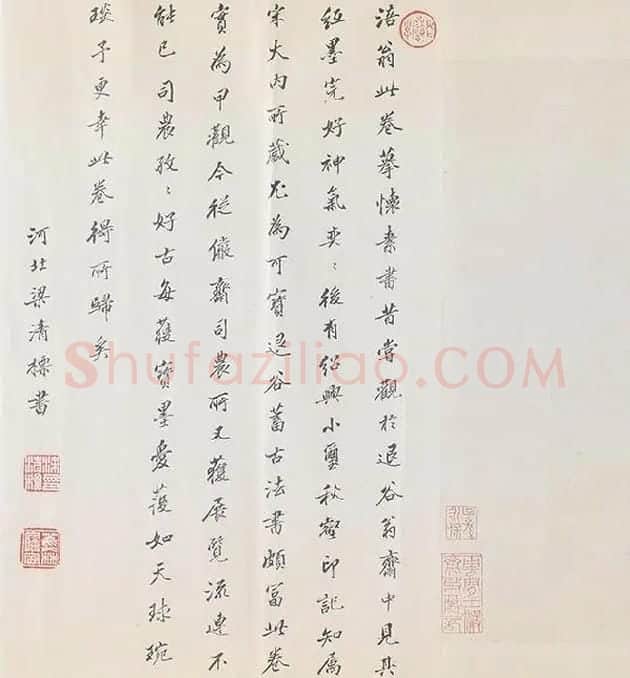 涪翁此卷摹懷素書昔嘗觀於退谷翁齋中見其
紙墨完好神氣奕〻後有紹興小璽秋壑印記知屬
宋大內所藏尤為可寶退谷蓄古法書頗富此卷
實為甲觀今從儼齋司農所又獲展覽流連不
能已司農孜〻好古每獲寶墨愛護如天球琬
琰予更幸此卷得所歸矣
河北梁清標書
Shufaziliao.COM